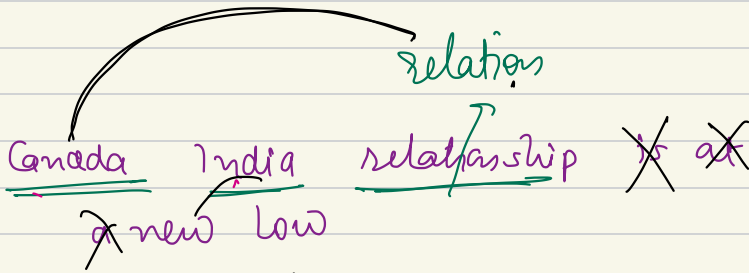 relation
Canada India relationship is at
a new low